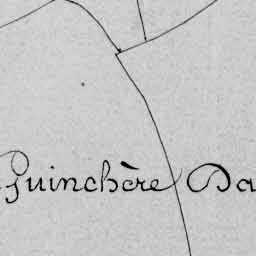 Guinchère Da